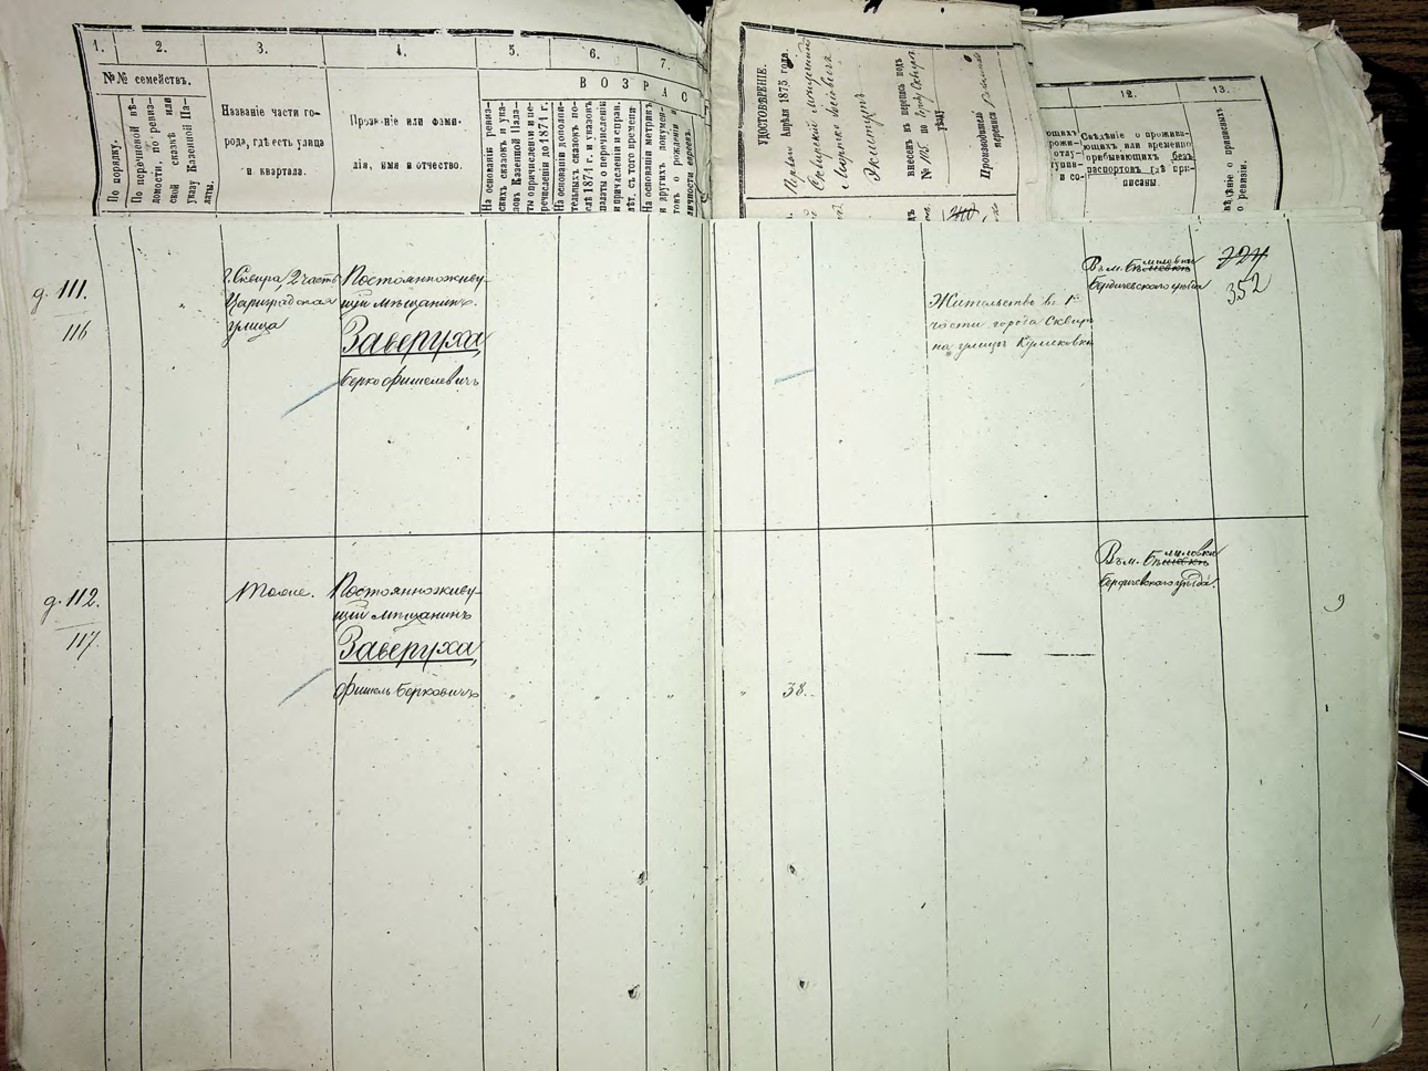 1.
2.
3.
4.
5.
6.
7.
№№ семействъ.
По порядку.
По перечневой вѣ-
домости, по ревиз-
ской сказкѣ или
указу Казенной Па-
латы.
Названіе части го-
рода, гдѣ есть улица
и квартала.
Прозваніе или фами-
лія, имя и отчество.
ВОЗРАС
На основаніи ревиз-
скихъ сказокъ и ука-
зовъ Казенной Пала-
ты о причисленіи и пе-
речисленіи до 1874 г.
На основаніи дополни-
тельныхъ сказокъ по-
слѣ 1874 г. и указовъ
палаты о перечисленіи
и причисленіи и справ.
лѣт. съ того времени
На основаніи метрикъ
и другихъ докумен-
товъ о рожденіи и
личности евреевъ.
УДОСТОВѢРЕНІЕ.
Апрѣля 1875 года.
Сквирскій мѣщанинъ
внесенъ въ перепись подъ
№ 1175. по городу Сквирѣ
уѣзду
Производитель
переписи
240
12.
13.
Свѣдѣніе о прожива-
ющихъ или временно
пребывающихъ безъ
паспортовъ гдѣ при-
писаны.
о ревизіи.
д. 111.
116
г. Сквира 2 часть
Цариградская
улица
Постоянноживу-
щій мѣщанинъ.
Заверуха,
Берко Фишелевичъ
Жительство въ 1й
части города Сквиры
на улицѣ Куликовкѣ
Въ м. Бѣлиловкѣ
Бердичевскаго уѣзда
224
352
д. 112.
117.
Тоже.
Постоянноживу-
щій мѣщанинъ
Заверуха,
Фишель Берковичъ
38.
Въ м. Бѣлиловкѣ
Бердичевскаго уѣзда.
9